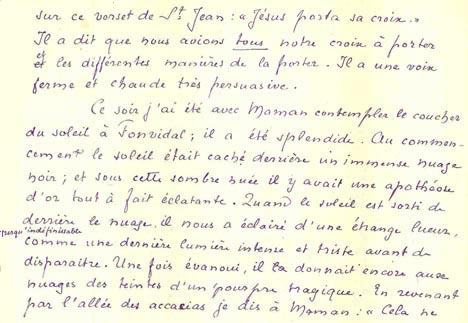 sur ce verset de St Jean : « Jésus porta sa croix. »
Il a dit que nous avions tous notre croix à porter
et
et les différentes manières de la porter. Il a une voix
ferme et chaude très persuasive.
Ce soir j'ai été avec Maman contempler le coucher
du soleil à Fonvidal ; il a été splendide. Au commen-
cement le soleil était caché derrière un immense nuage
noir ; et sous cette sombre nuée il y avait une apothéose
d'or tout à fait éclatante. Quand le soleil est sorti de
derrière le nuage, il nous a éclairé d'une étrange lueur,
presqu'indéfinissable
comme une dernière lumière intense et triste avant de
disparaître. Une fois évanoui, il donnait encore aux
nuages des teintes d'un pourpre tragique. En revenant
par l'allée des accacias je dis à Maman : « Cela ne